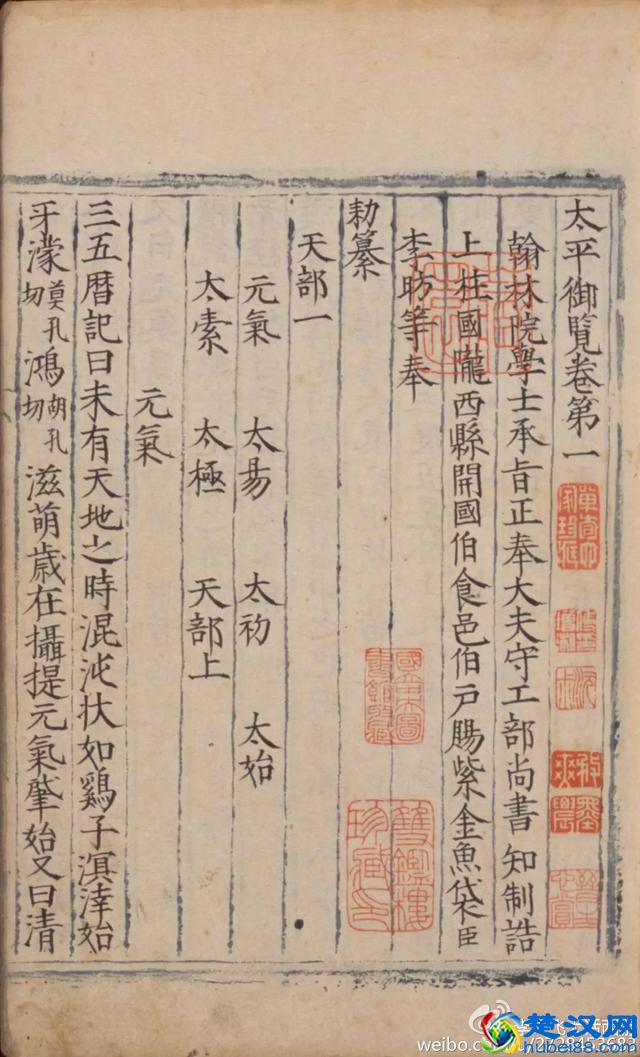 太平御覽卷第一
翰林院學士承旨正奉大夫守工部尚書知制誥
上柱國隴西縣開國伯食邑伯戸賜紫金魚袋臣
李昉等奉
勅纂
天部一
元氣 太易 太初 太始
太素 太極 天部上
元氣
三五曆記曰未有天地之時混沌狀如鷄子溟涬始
牙濛莫孔切鴻胡孔切滋萌歲在攝提元氣肇始又曰清
雙鑑樓珍藏印
楚汉网
hubei88.com